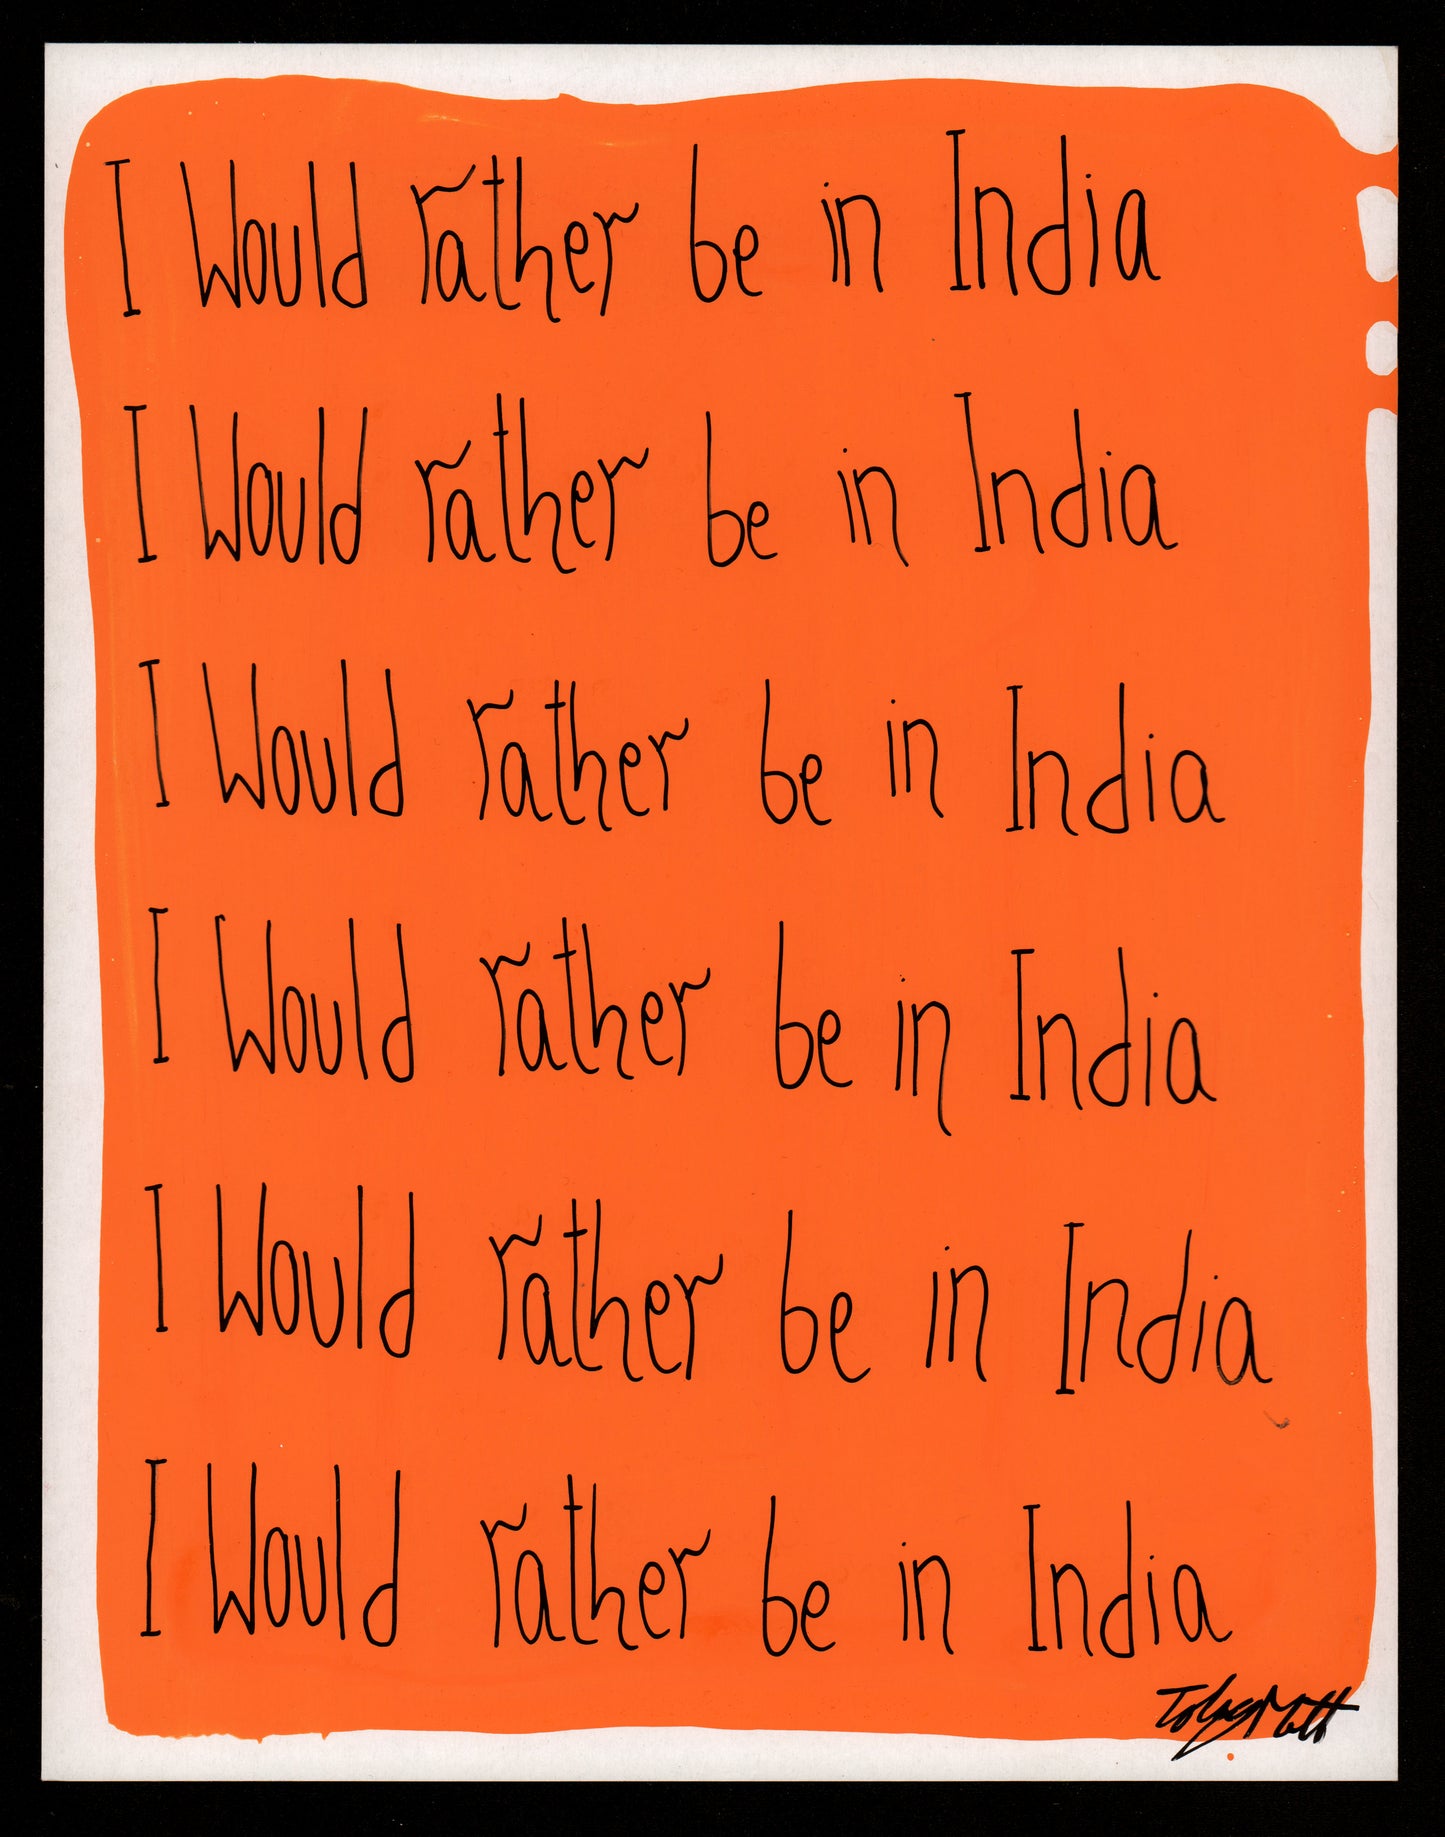 I Would rather be in India
I Would rather be in India
I Would rather be in India
I Would rather be in India
I Would rather be in India
I Would rather be in India